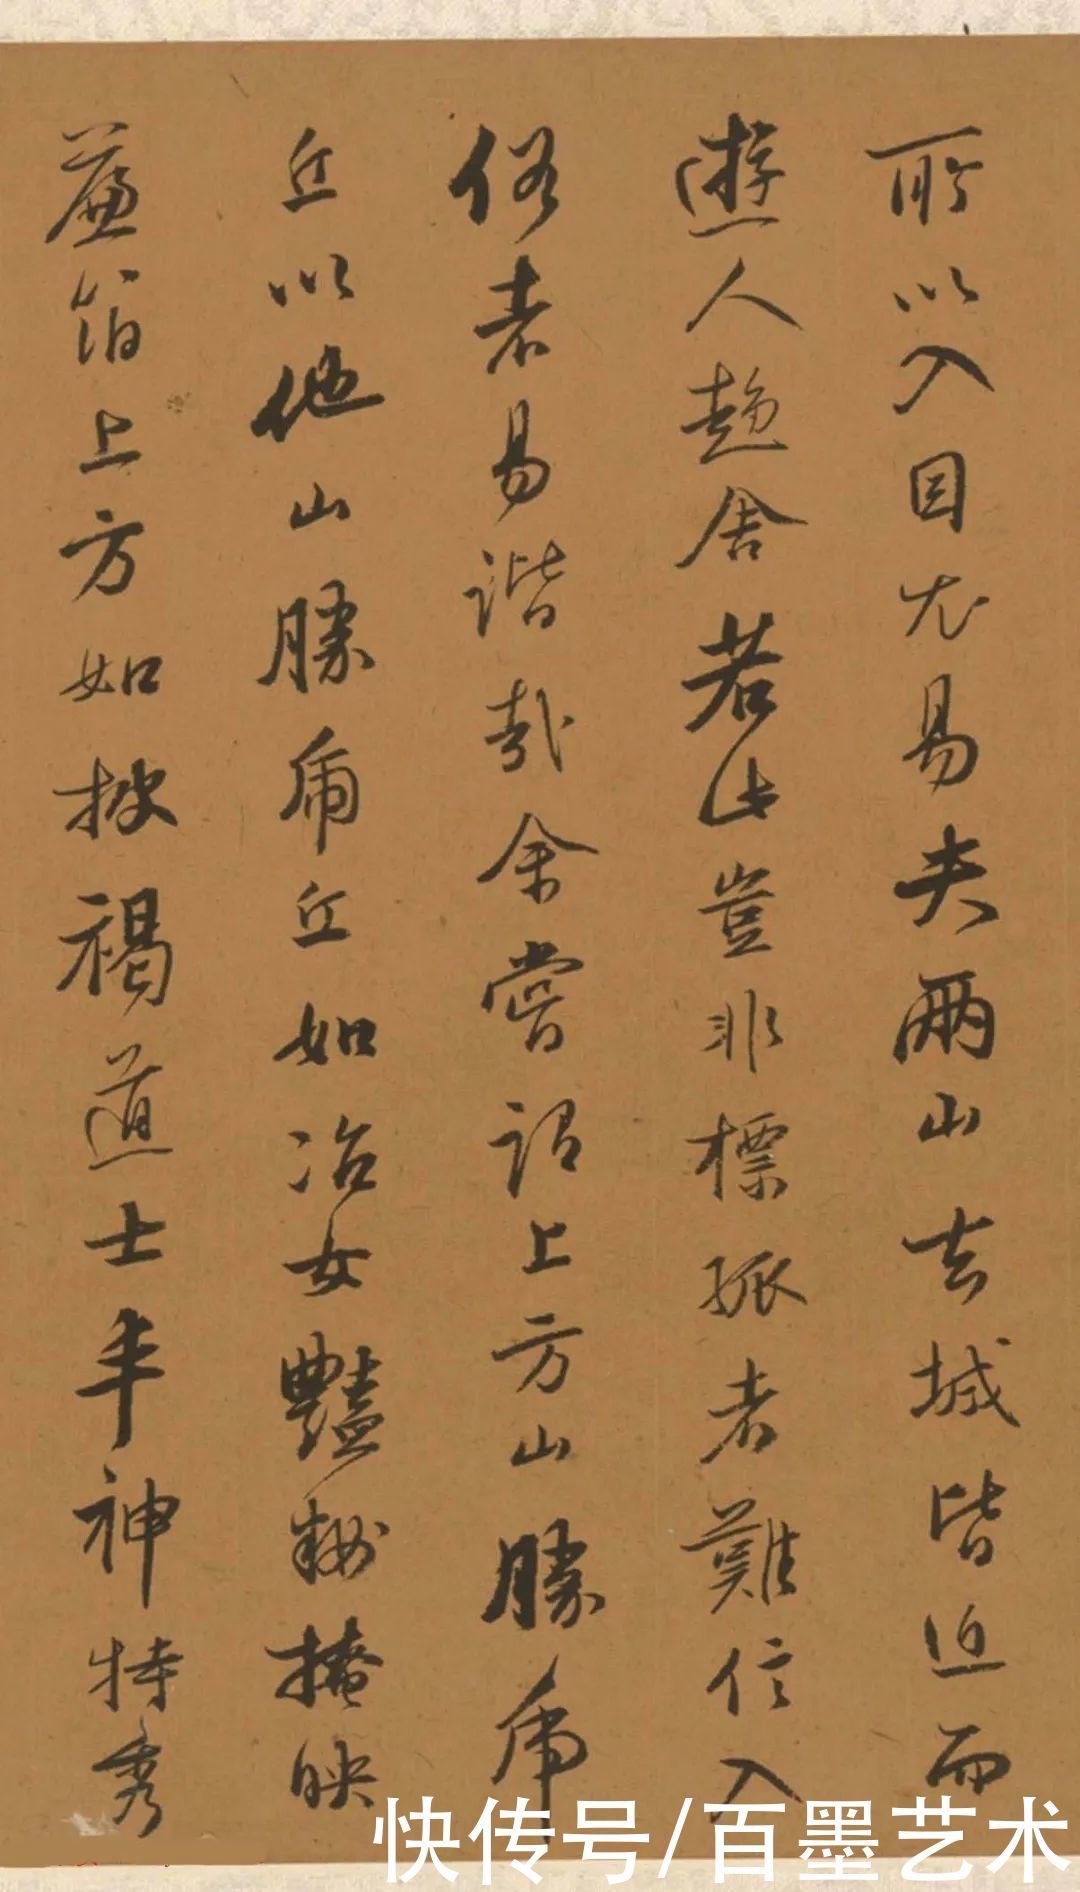 所以入目尤易夫兩山去城皆近而
遊人趨舍若此豈非標孤者難信入
俗者易諧哉余嘗謂上方山勝虎
丘以他山勝虎丘如冶女艷粧掩映
簾箔上方如披褐道士丰神特秀
快传号/百墨艺术